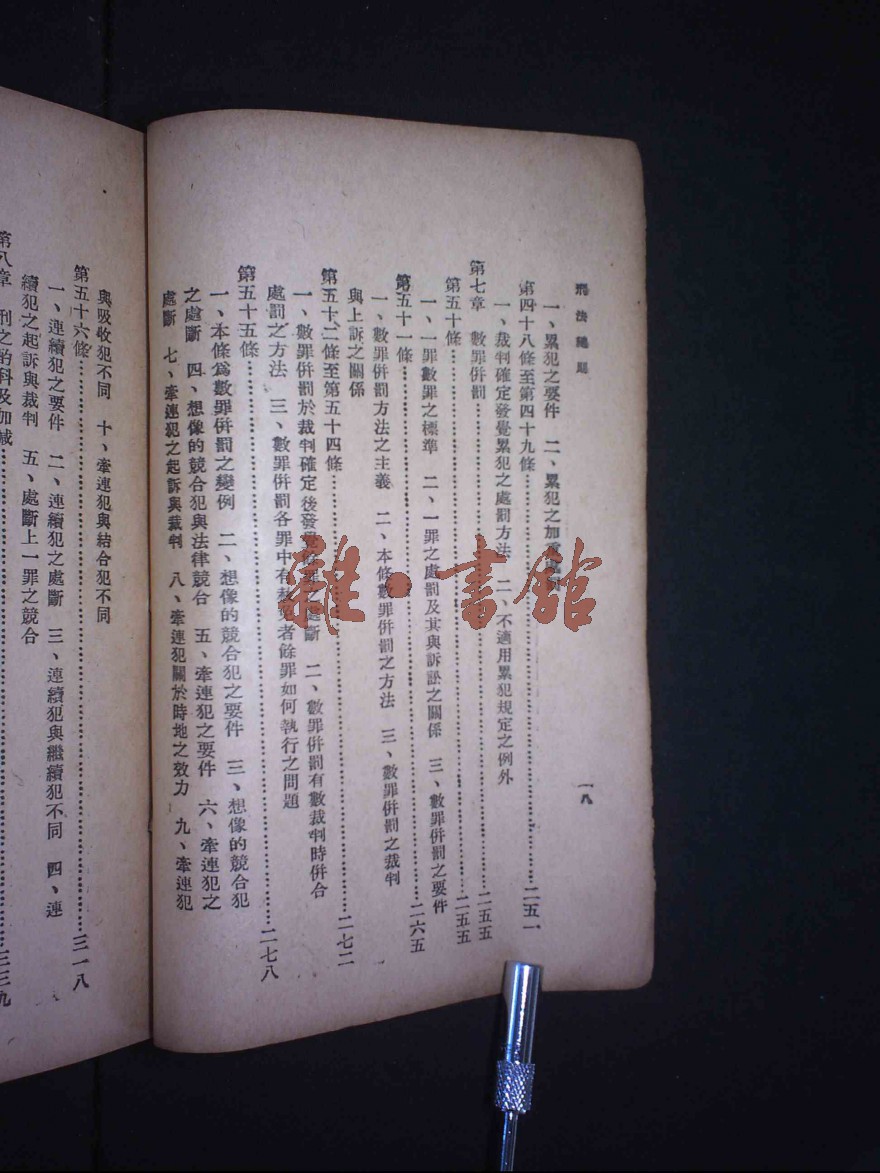 刑法總則
一八
一、累犯之要件 二、累犯之加重
第四十八條至第四十九條…………二五一
一、裁判確定發覺累犯之處罰方法 二、不適用累犯規定之例外
第七章 數罪併罰…………二五五
第五十條…………二五五
一、一罪數罪之標準 二、一罪之處罰及其與訴訟之關係 三、數罪併罰之要件
第五十一條…………二六五
一、數罪併罰方法之主義 二、本條數罪併罰之方法 三、數罪併罰之裁判
與上訴之關係
第五十二條至第五十四條…………二七二
一、數罪併罰於裁判確定後發覺餘罪之處斷 二、數罪併罰有數裁判時併合
處罰之方法 三、數罪併罰各罪中有赦免者餘罪如何執行之問題
第五十五條…………二七八
一、本條為數罪併罰之變例 二、想像的競合犯之要件 三、想像的競合犯
之處斷 四、想像的競合犯與法律競合 五、牽連犯之要件 六、牽連犯之
處斷 七、牽連犯之起訴與裁判 八、牽連犯關於時地之效力 九、牽連犯
與吸收犯不同 十、牽連犯與結合犯不同
第五十六條…………三一八
一、連續犯之要件 二、連續犯之處斷 三、連續犯與繼續犯不同 四、連
續犯之起訴與裁判 五、處斷上一罪之競合
第八章 刑之酌科及加減…………三三九
雜·書館